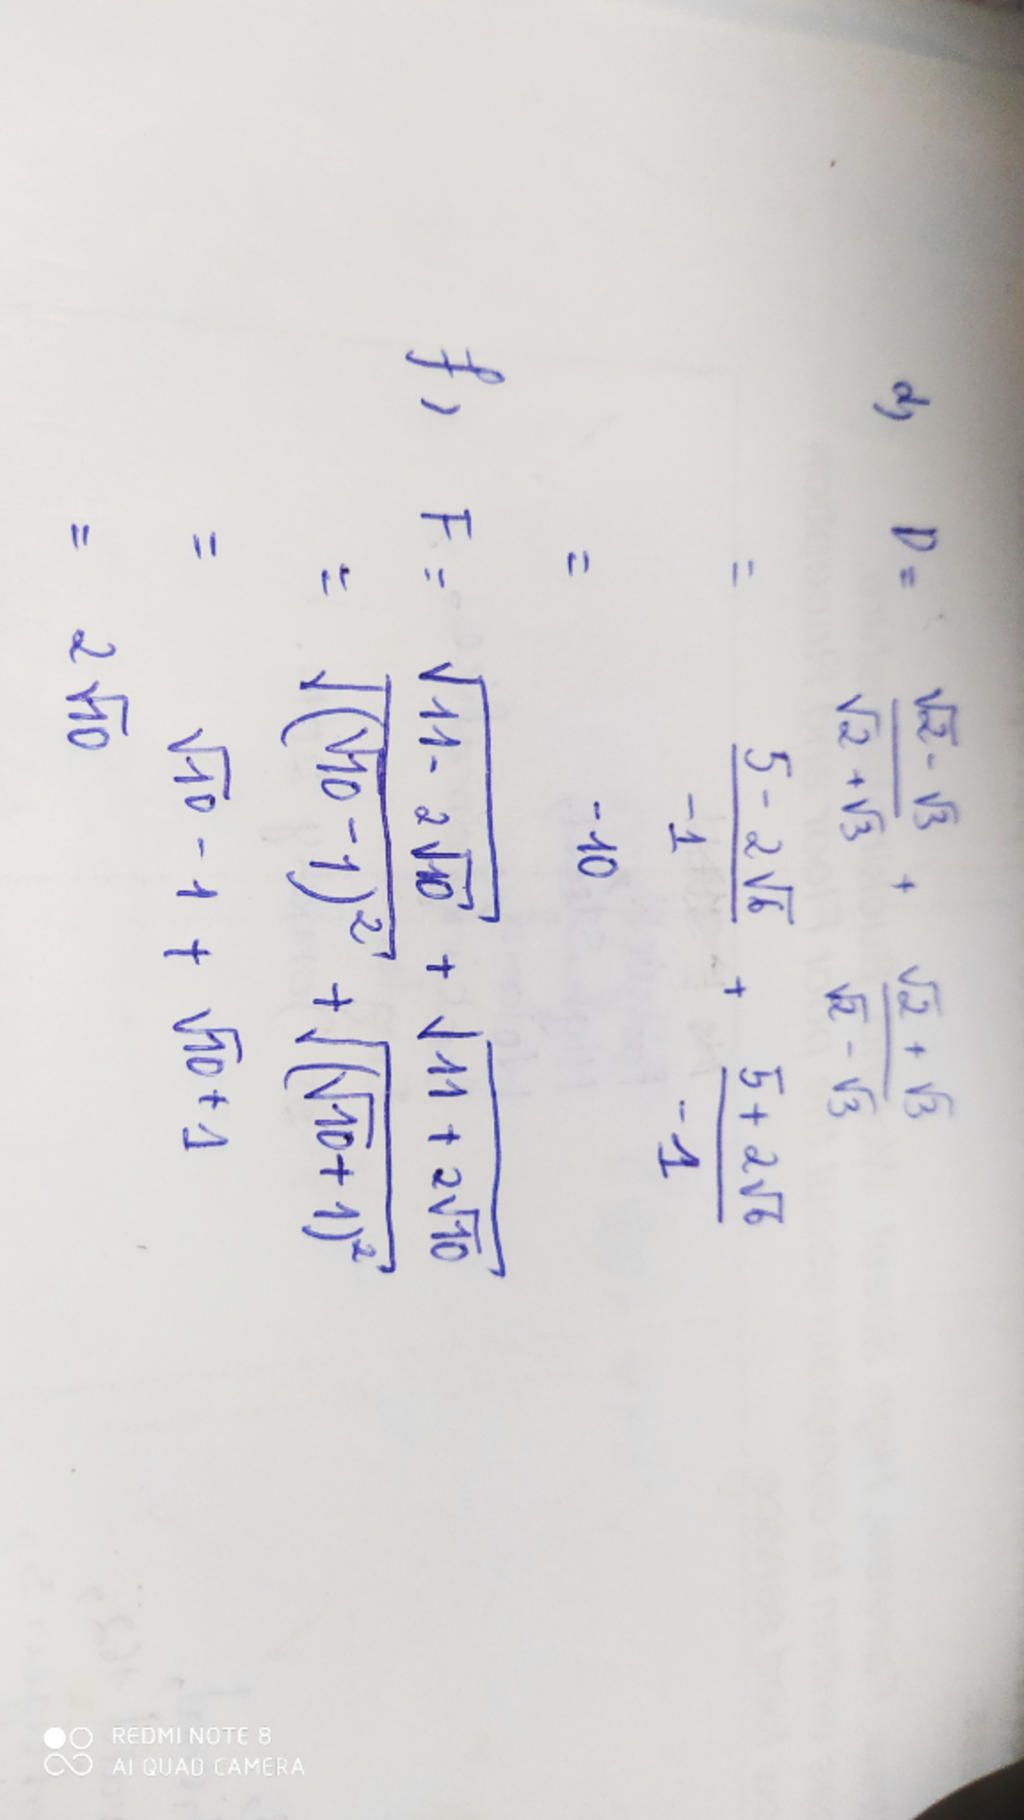 d, D = (√2 - √3)/(√2 + √3) + (√2 + √3)/(√2 - √3)
= (5 - 2√6)/(-1) + (5 + 2√6)/(-1)
= -10
f, F = √(11 - 2√10) + √(11 + 2√10)
= √((√10 - 1)²) + √((√10 + 1)²)
= √10 - 1 + √10 + 1
= 2√10
REDMI NOTE 8
AI QUAD CAMERA